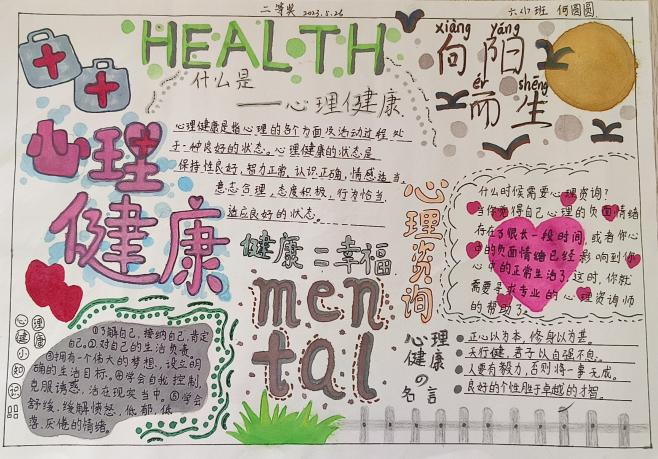 二等奖 2023.5.26
六(1)班 何圆圆
HEALTH
xiàng yáng
向阳
ér shēng
而生
什么是
——心理健康
心理健康
心理健康是指心理的各个方面及活动过程处
于一种良好的状态。心理健康的状态是
保持性良好,智力正常,认识正确,情感适当,
意志合理,态度积极,行为恰当,
适应良好的状态。
健康=幸福
mental
心理资询
什么时候需要心理资询?
当你觉得自己心理的负面情绪
存在了很长一段时间,或者你心
的负面情绪已经影响到你
的正常生活了,这时,你就
需要寻求专业的心理资询师
的帮助了。
心理健康小知识
①了解自己,接纳自己,肯定
自己。②对自己的生活负责。
③拥有一个伟大的梦想,设立明
确的生活目标。④学会自我控制,
克服诱惑,活在现实当中。⑤学会
舒缓,缓解愤怒,低郁,低
落,厌倦的情绪。
心理健康の名言
正心以为本,修身以为基。
天行健,君子以自强不息。
人要有毅力,否则将一事无成。
良好的个性胜于卓越的才智。